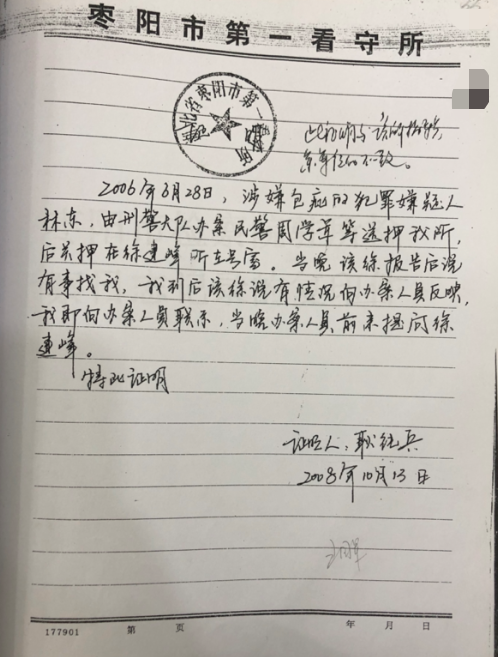 枣阳市第一看守所
湖北省枣阳市第一看守所
2006年6月28日，涉嫌包庇的犯罪嫌疑人
林东，由刑警大队办案民警周学军等送押我所，
后关押在徐建峰所在号室。当晚该徐报告后说
有事找我，我到后该徐说有情况向办案人员反映，
我即向办案人员联系，当晚办案人员前来提问徐
建峰。
特此证明
证明人：耿继兵
2008年10月13日
177901 第 页 年 月 日